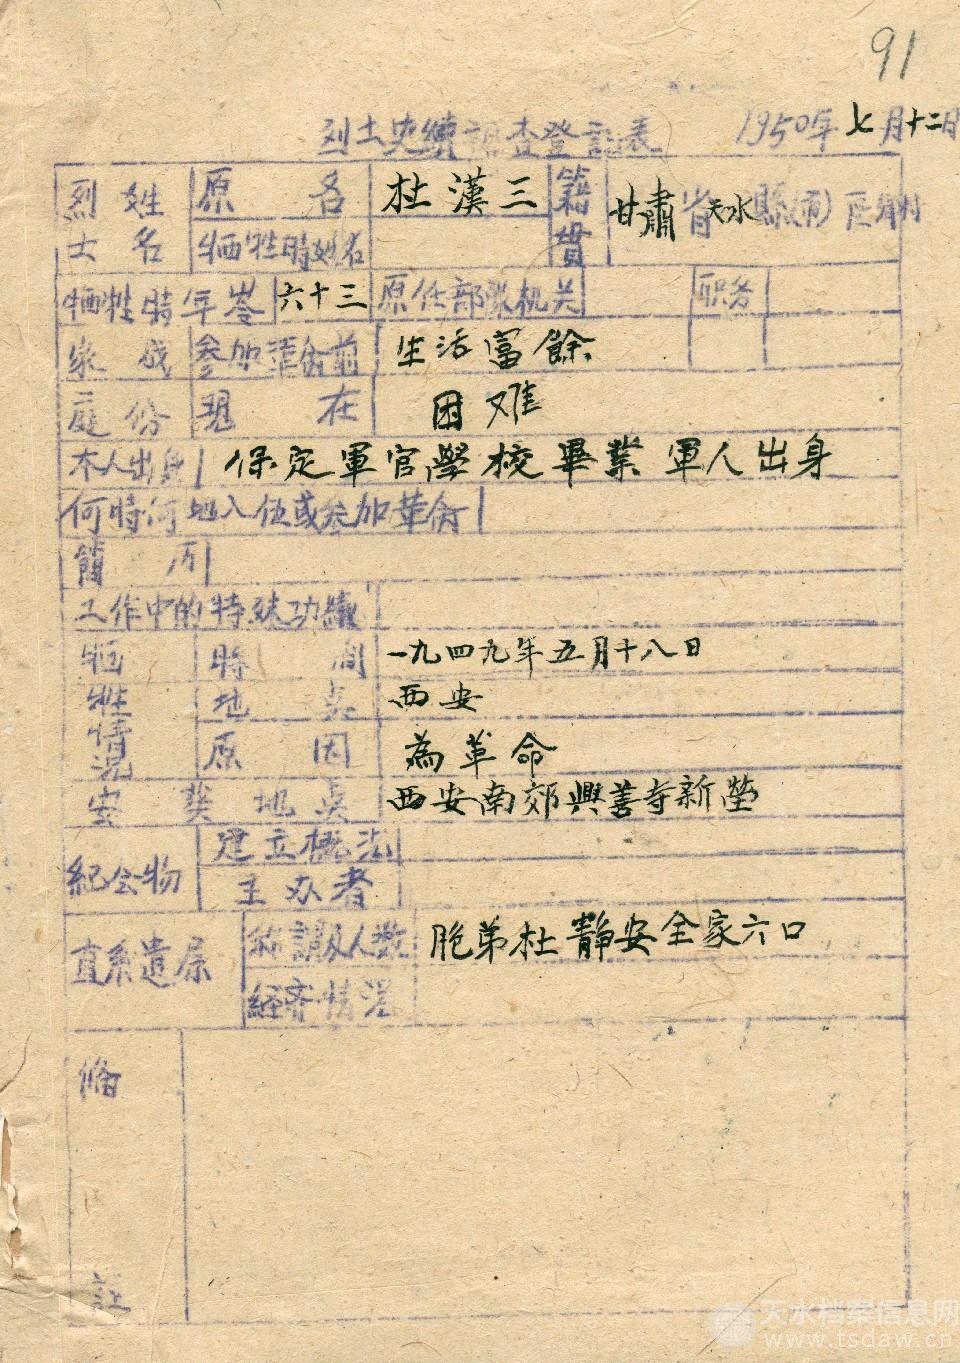 91
烈士史績調查登記表 1950年七月十二日
烈士姓名 原名 杜漢三 籍貫 甘肅省天水縣(市)區鄉村
牺牲時姓名
牺牲時年岺 六十三 原任部隊机关 职务
家庭成份 参加革命前 生活富餘
現在 困难
本人出身 保定軍官學校畢業軍人出身
何時何地入伍或参加革命
簡历
工作中的特殊功績
牺牲情况 時間 一九四九年五月十八日
地点 西安
原因 為革命
安葬地点 西安南郊興善寺新塋
紀念物 建立概況
主办者
直系遺属 称謂及人数 胞弟杜靜安全家六口
經济情況
備註
天水档案信息网
www.tsdaw.cn